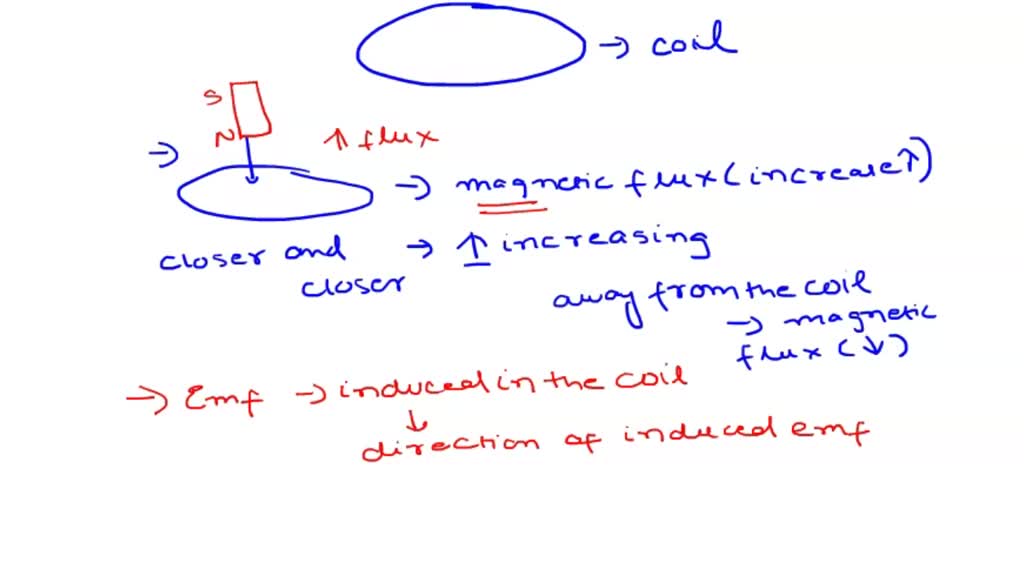 → coil
S
N
↑ flux
→
→ magnetic flux (increase↑)
closer and
closer
→ ↑ increasing
away from the coil
→ magnetic
flux (↓)
→ Emf → induced in the coil
↓
direction of induced emf